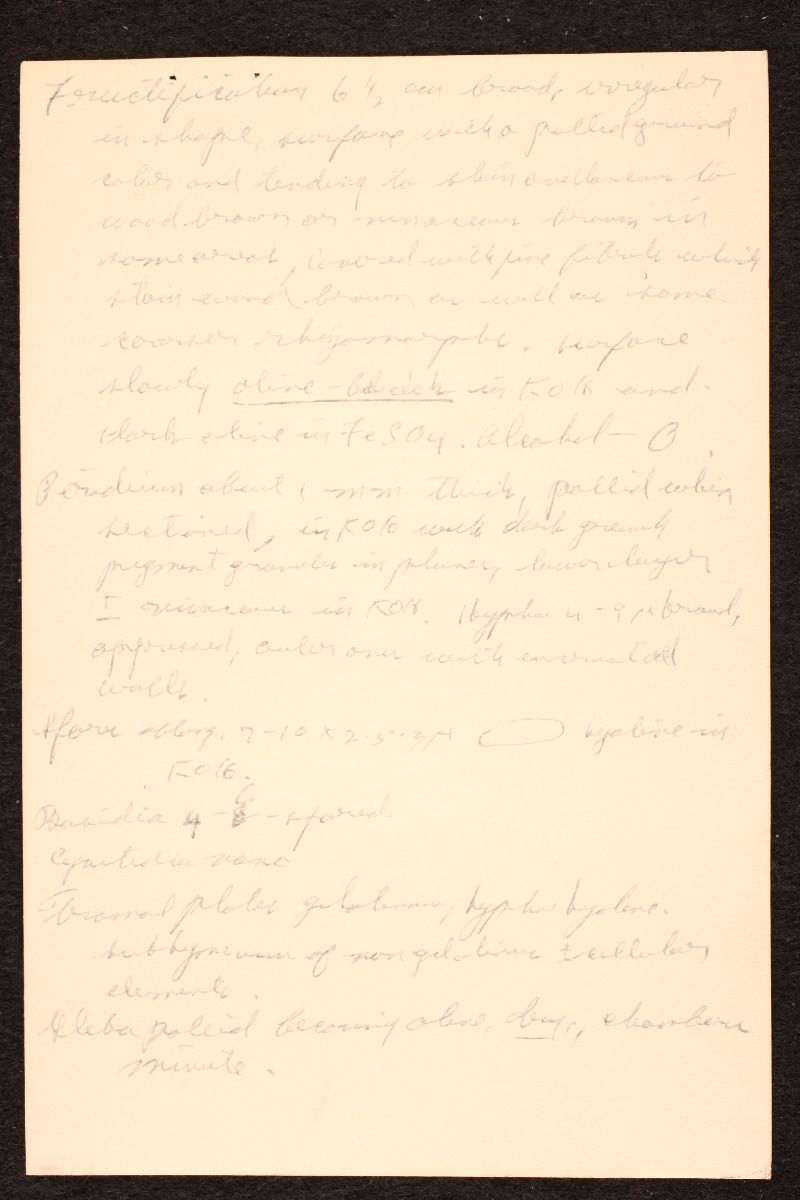 Fructification 6 ½ cm broad, irregular
in shape, surface with a pallid ground
color and tending to stain avellaneous to
wood brown or vinaceous brown in
some areas, covered with fine fibrils which
stain wood brown as well as some
coarser rhizomorphs. surface
slowly olive-black in KOH and
dark olive in FeSO4. Alcohol - O.
Peridium about 1 mm. thick, pallid when
sectioned, in KOH with dark
pigment granules in lower layer
± vinaceous in KOH. Hyphae 4-9 µ broad,
appressed, outer ones with
walls.
Spores oblong, 7-10 x 2.5-3µ hyaline in
KOH.
Basidia 4-8-spored.
Cystidia none
Tramal plates gelatinous, hyphae hyaline.
subhymenium of non gelatinous ± cellular
elements.
Gleba pallid becoming olive, dry, chambers
minute.